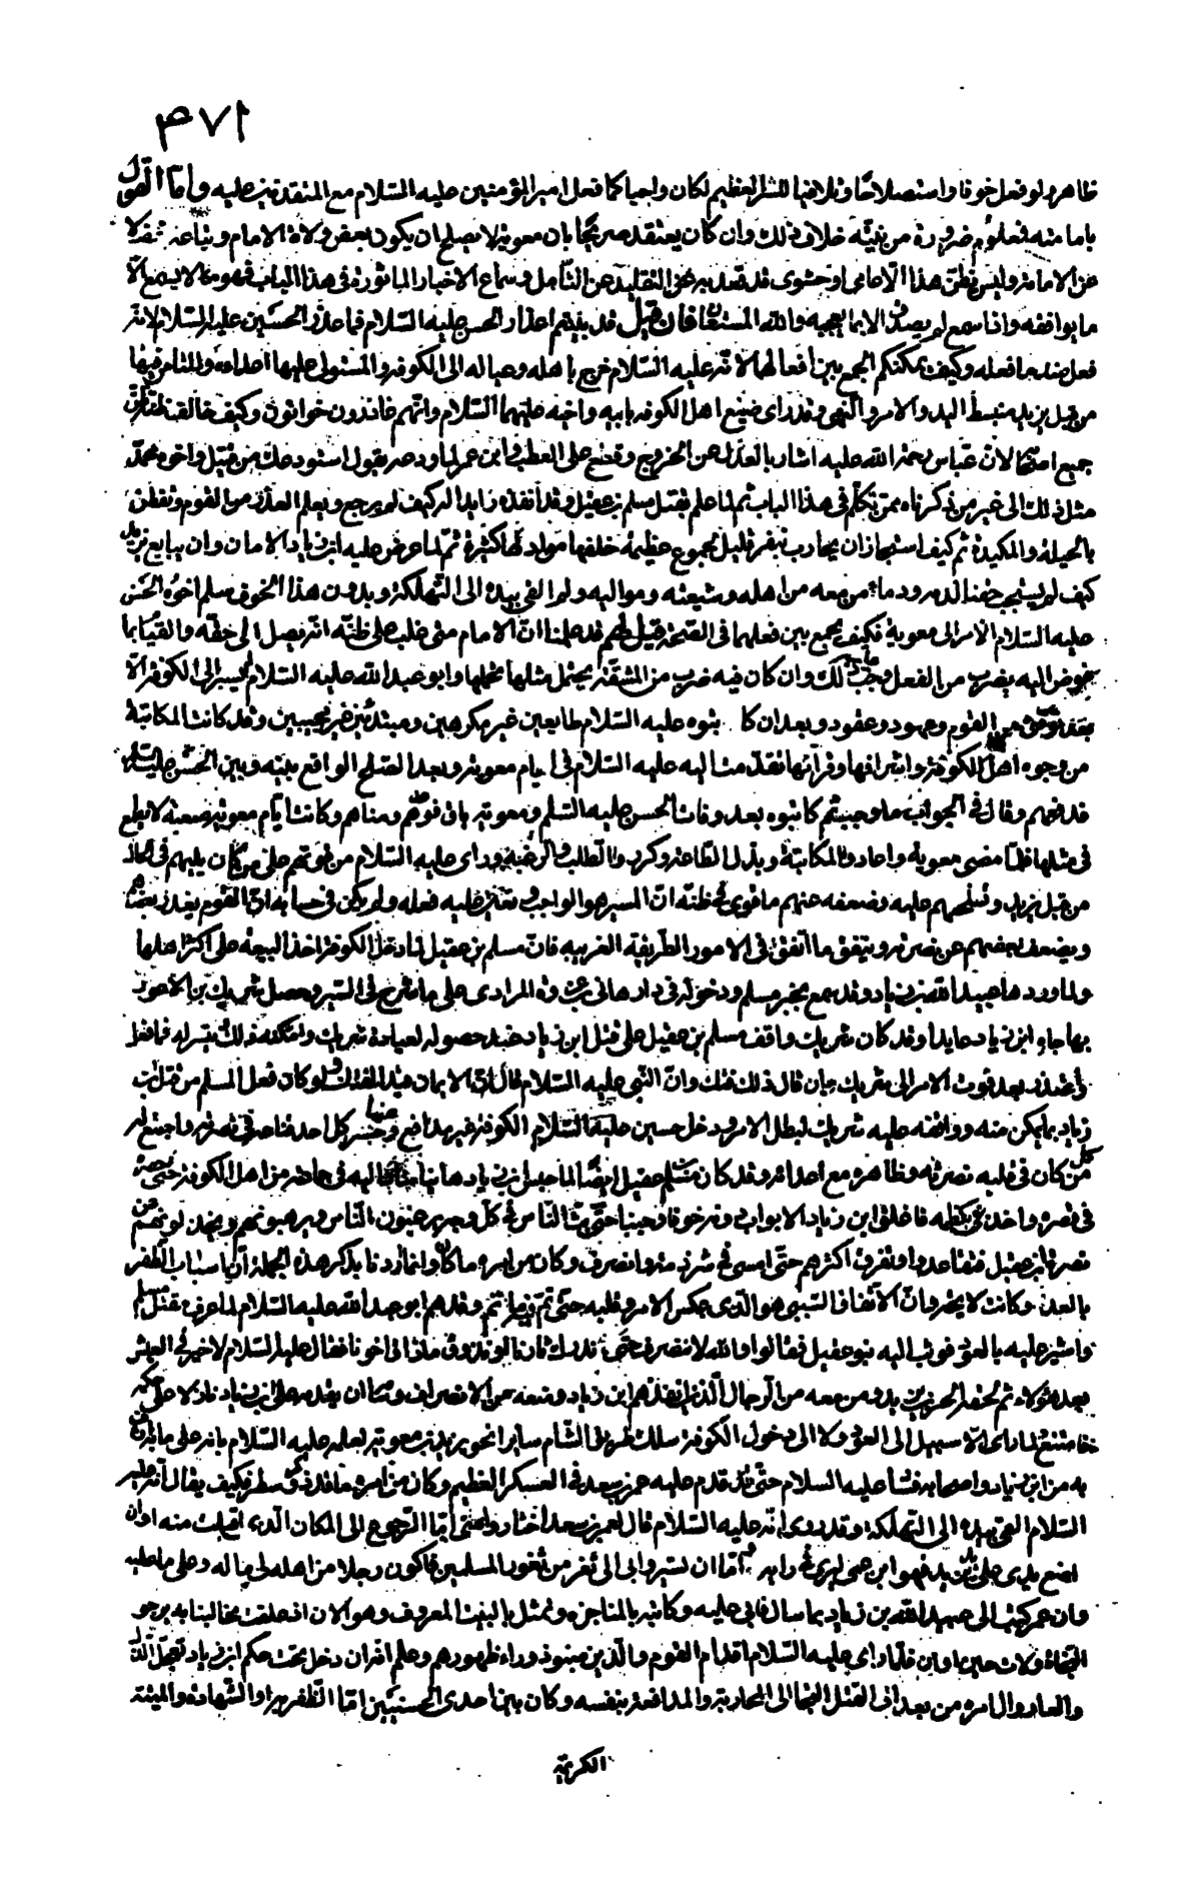 ٤٧١
ظاهره لو فعل خوفا واستصلاحا وتلافيا للشر العظيم لكان واجبا كما فعل امير المؤمنين عليه السلام مع المتقدمين عليه واما القول
بامامته فمعلوم ضرورة من نيته خلاف ذلك وان كان يعتقد صريحا بان معوية لا يصلح ان يكون بعض ولاة الامام وتباعه فضلا
عن الامامة وليس يظن هذا الا عامى او حشوى قد قعد به عن التقليد عن التأمل وسماع الاخبار المأثورة فى هذا الباب فهو لا يسمع الا
ما يوافقه واذا سمع لم يصدق الا بما يعجبه والله المستعان فان قيل قد بينتم اعذار الحسن عليه السلام فما عذر الحسين عليه السلام لانه
فعل ضد ما فعله وكيف يمكنكم الجمع بين افعالهما لانه عليه السلام خرج باهله وعياله الى الكوفة والمستولى عليها اعداءه والمتامر فيها
من قبل يزيد منبسط اليد والامر والنهى وقد راى صنيع اهل الكوفة بابيه واخيه عليهما السلام وانهم غادرون خوانون وكيف خالف ظنه ظن
جميع اصحابه لان ابن عباس رحمة الله عليه اشار بالعدل عن الخروج وقطع على العطب وابن عمر لما ودعه يقول استودعك من قتيل واخوه محمد
مثل ذلك الى غير من ذكرناه ممن تكلم فى هذا الباب ثم لما علم بقتل مسلم بن عقيل وقد انفذه زايدا له كيف لم يرجع ويعلم العذر من القوم وتفطن
بالحيلة والمكيدة ثم كيف استجاز ان يحارب بنفر قليل لجموع عظيمة خلفها مواد لها كثيرة ثم لما عرض عليه ابن زياد الامان وان يبايع يزيد
كيف لم يستجب حقنا لدمه ودماء من معه من اهله وشيعته ومواليه ولم القى بيده الى التهلكة وبدون هذا الخوف سلم اخوه الحسن
عليه السلام الامر الى معوية فكيف يجمع بين فعليهما فى الصحة قيل لهم قد علمنا ان الامام متى غلب على ظنه انه يصل الى حقه والقيام بما
فوض اليه بضرب من الفعل وجب عليه ذلك وان كان فيه ضرب من المشقة يحتمل مثلها تحملها وابو عبد الله عليه السلام لم يسر الى الكوفة الا
بعد توثق من القوم وعهود وعقود وبعد ان كاتبوه عليه السلام طايعين غير مكرهين ومبتدئين غير مجيبين وقد كانت المكاتبة
من وجوه اهل الكوفة واشرافها وقرائها تقدمت اليه عليه السلام فى ايام معوية وبعد الصلح الواقع بينه وبين الحسن عليه السلام
فدفعهم وقال فى الجواب ما وجب ثم كاتبوه بعد وفات الحسن عليه السلم ومعوية باق فوعدهم ومناهم وكانت ايام معوية صعبة لا يطمع
فى مثلها فلما مضى معوية واعادوا المكاتبة وبذل الطاعة وكرروا الطلب والرغبة وراى عليه السلام من قوتهم على من كان يليهم فى الحال
من قبل يزيد وتسلطهم عليه وضعفه عنهم ما قوى فى ظنه ان المسير هو الواجب وتعين عليه فعله ولم يكن فى حسابه ان القوم يغدر بعضهم
ويضعف بعضهم عن نصرته ويتفق ما اتفق فى الامور الطريفة الغريبة فان مسلم بن عقيل لما دخل الكوفة اخذ البيعة على اكثر اهلها
ولما وردها عبيد الله بن زياد وقد سمع بخبر مسلم ودخوله فى دار هانى بن عروة المرادى على ما شرح فى السير وحصل شريك بن الاعور
بها جاء ابن زياد عايدا وقد كان شريك واقف مسلم بن عقيل على قتل ابن زياد عند حصوله لعيادة شريك وامكنه ذلك وتيسر له فما فعل
واعتذر بعد فوت الامر الى شريك بان قال ذلك فتك وان النبى عليه السلام قال ان الايمان قيد الفتك ولو كان فعل المسلم من قتل ابن
زياد بما يمكن منه ووافقه عليه شريك لبطل الامر ودخل حسين عليه السلام الكوفة غير مدافع وحسر كل احد قناعه فى نصرته واجتمع له
من كان فى قلبه نصرته وظاهره مع اعدائه وقد كان مسلم بن عقيل ايضا لما حبس ابن زياد هانيا سار اليه فى جماعة من اهل الكوفة حتى حصره
فى قصره واخذ بكظمه فاغلق ابن زياد الابواب دونه خوفا وجبنا حتى بث الناس فى كل وجه يرغبون الناس ويرهبونهم ويخذلونهم عن
نصرة ابن عقيل فتقاعدوا وتفرق اكثرهم حتى امسى فى شرذمة وانصرف وكان من امره ما كان وانما اردنا بذكر هذه الجملة ان اسباب الظفر
بالعدو كانت لايحة وان الاتفاق السيئ هو الذى عكس الامر وقلبه حتى تم فيه ما تم وقد هم ابو عبد الله عليه السلام لما عرف بقتل مسلم
واشير عليه بالعود فوثب اليه بنو عقيل فقالوا والله لا ننصرف حتى ندرك ثارنا او نذوق ما ذاق اخونا فقال عليه السلام لا خير فى العيش
بعد هؤلاء ثم لحقه الحر بن يزيد ومن معه من الرجال الذين انفذهم ابن زياد ومنعه من الانصراف وسامه ان يقدمه على ابن زياد نازلا على حكمه
فامتنع لما راى الا سبيل الى العود ولا الى دخول الكوفة سلك طريق الشام سايرا نحو يزيد بن معوية لعلمه عليه السلام بانه على ما به ارق
به من ابن زياد واصحابه فسار عليه السلام حتى قدم عليه عمر بن سعد فى العسكر العظيم وكان من امره ما قد ذكر وسطر فكيف يقال انه عليه
السلام القى بيده الى التهلكة وقد روى انه عليه السلام قال لعمر بن سعد اختاروا منى اما الرجوع الى المكان الذى اقبلت منه او ان
اضع يدى على يد يزيد فهو ابن عمى ليرى فى رايه واما ان تسيروا بى الى ثغر من ثغور المسلمين فاكون رجلا من اهله لى ماله وعلى ما عليه
وان عمر كتب الى عبيد الله بن زياد بما سال فابى عليه وكاتبه بالمناجزة وتمثل بالبيت المعروف وهو الان اذ علقت مخالبنا به يرجو
النجاة ولات حين مناص فلما راى عليه السلام اقدام القوم وان الدين منبوذ وراء ظهورهم وعلم انه ان دخل تحت حكم ابن زياد تعجل الذل
والعار وال امره من بعد الى القتل التجأ الى المحاربة والمدافعة بنفسه وكان بين احدى الحسنيين اما الظفر به او الشهادة والميتة
الكريمة